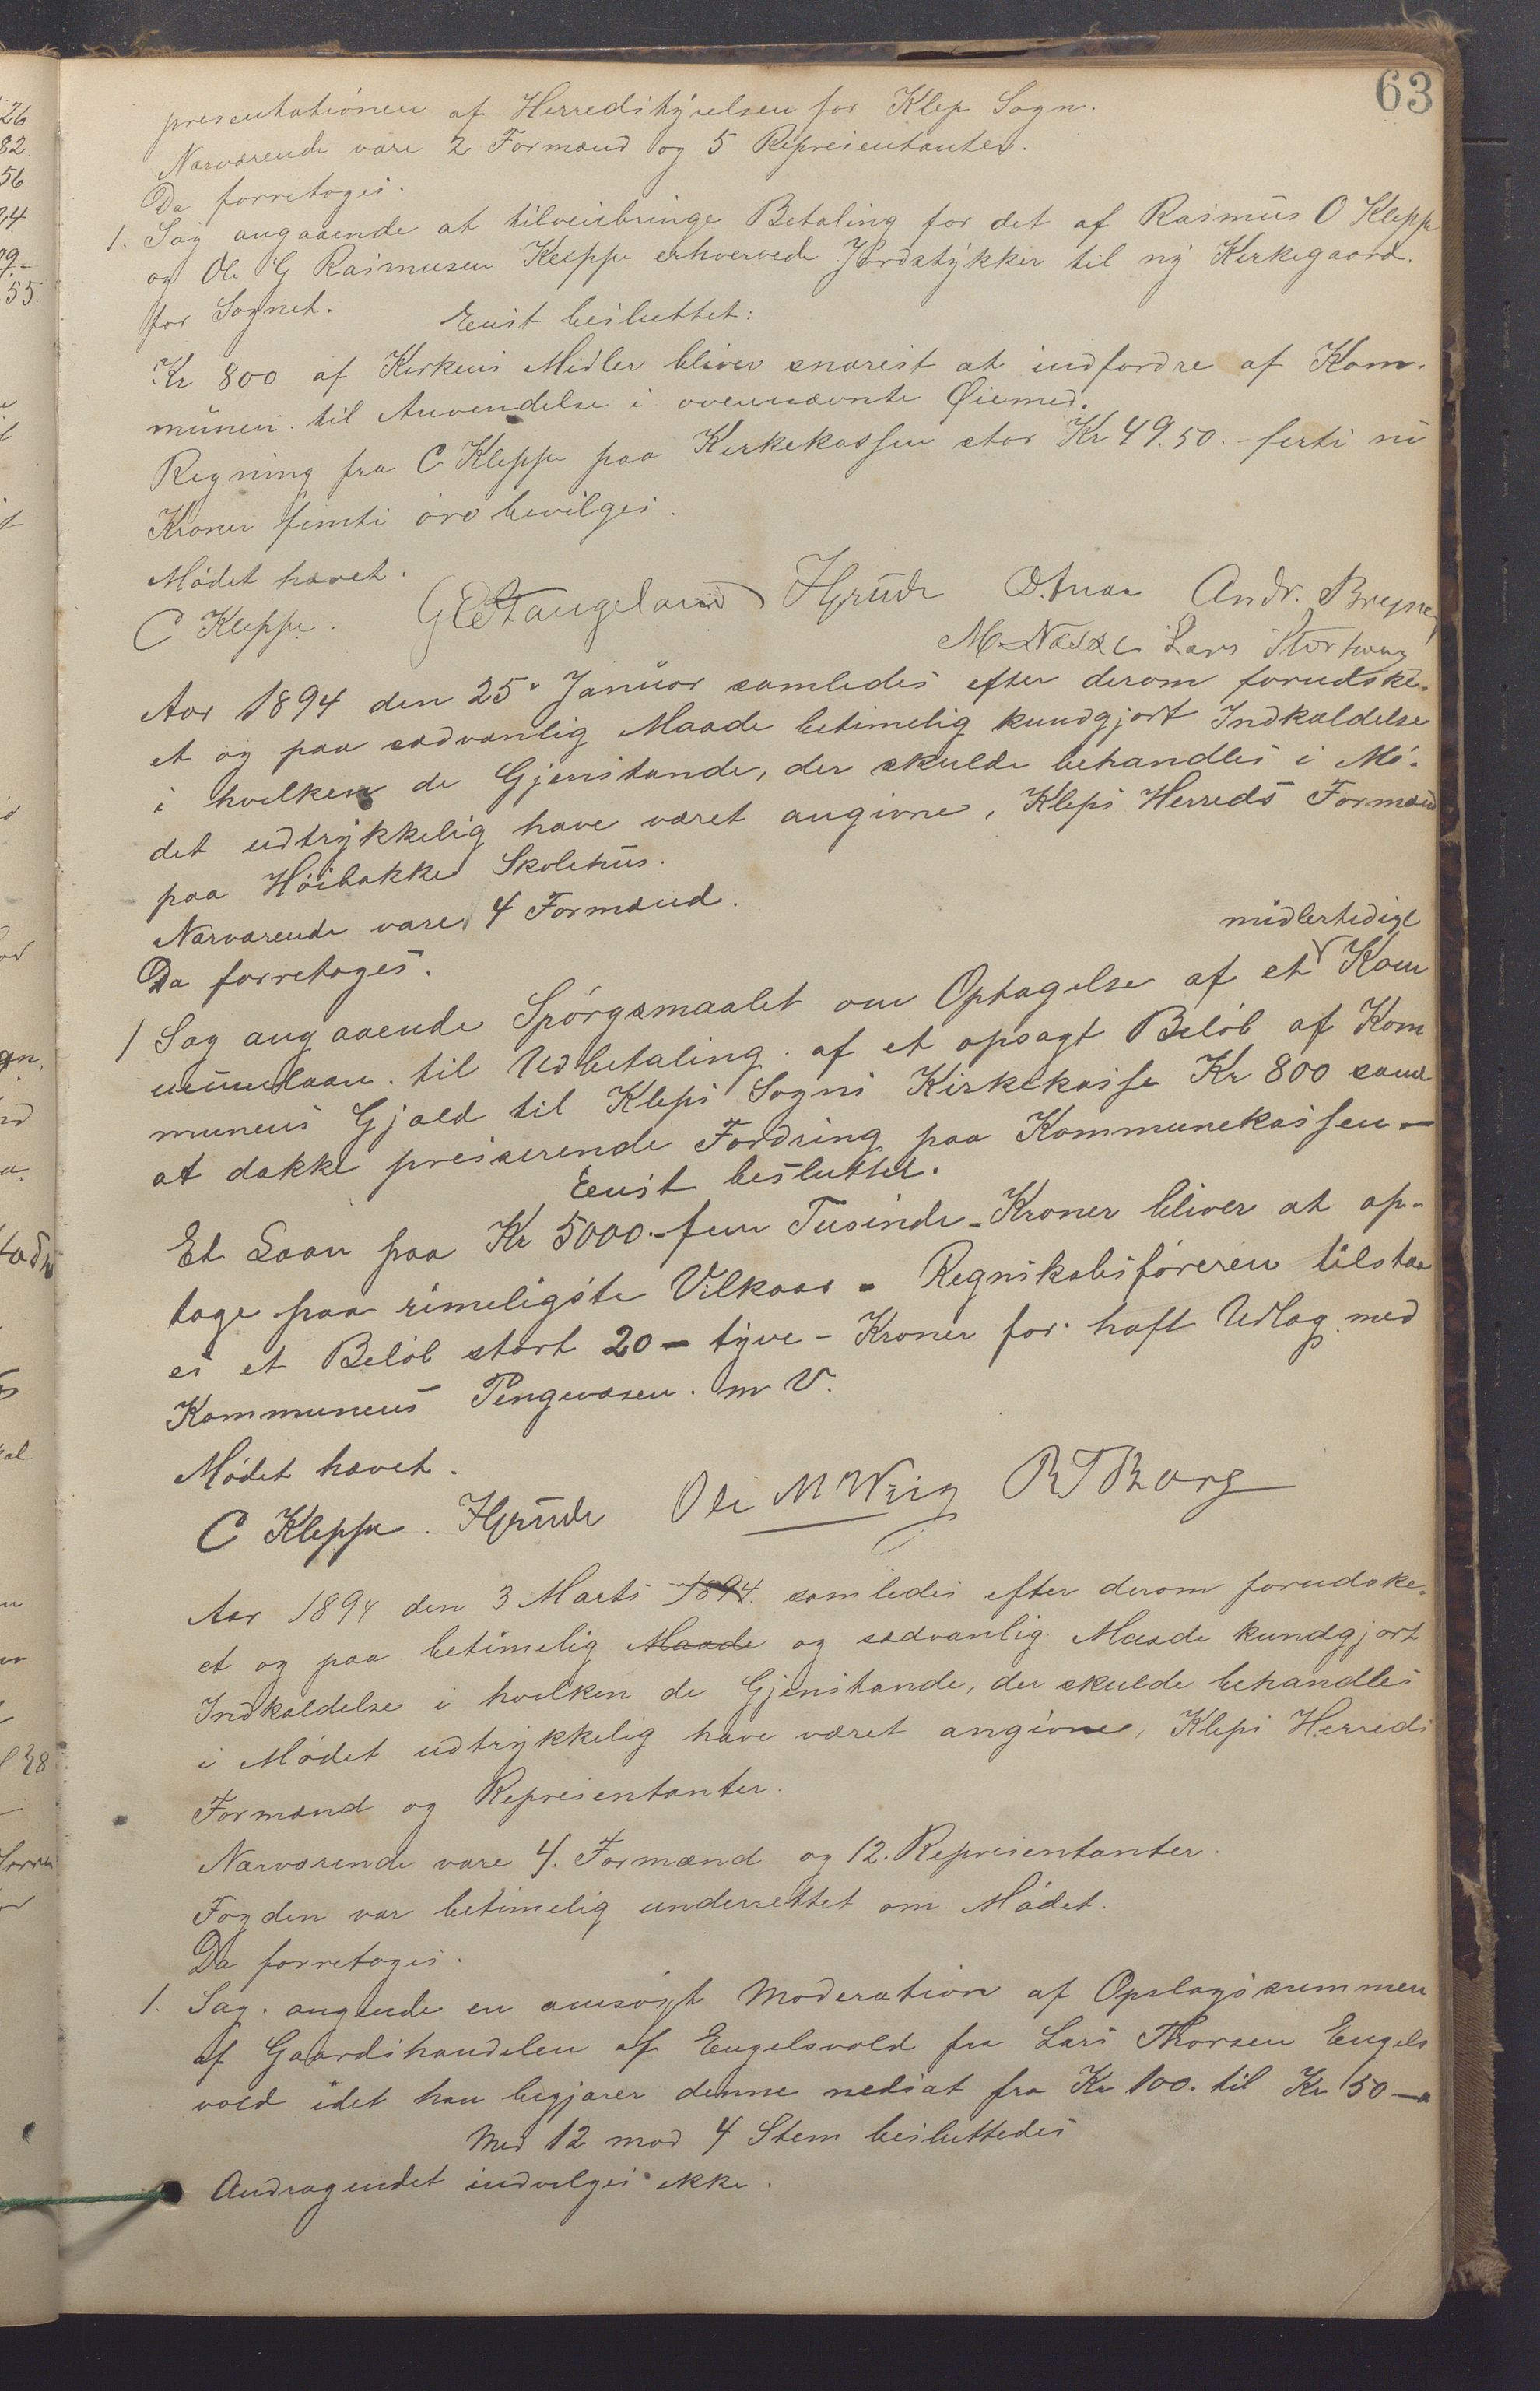 63
presentationen af Herredstyrelsen for Klep Sogn.
Nærværende vare 2 Formænd og 5 Representanter.
Da forretoges.
1. Sag angaaende at tilveiebringe Betaling for det af Rasmus O Klepp
og Ole G Rasmusen Kleppe erhvervede Jordstykker til ny Kirkegaard.
for Sognet. Enst besluttet:
Kr 800 af Kirkens Midler bliver snarest at indfordre af Kom-
munen til Anvendelse i ovennævnte Øiemed.
Regning fra C Kleppe paa Kirkekassen stor Kr 49.50. - ferti ni
Kroner femti öre bevilges.
Mödet hævet.
C Kleppe. G E Stangeland H Grude O. Tuan Andr. Bryne
M Næsse Lars Storhaug
Aar 1894 den 25. Januar samledes efter derom forudske-
et og paa sædvanlig Maade betimelig kundgjort Indkaldelse
i hvilken de Gjenstande, der skulde behandles i Mö-
det udtrykkelig have været angivne, Kleps Herreds Formænd
paa Höibakke Skolehus.
Nærværende vare 4 Formænd.
Da forretoges.
midlertidigt
1 Sag angaaende Spörgsmaalet om Optagelse af et Kom
munelaan til Udbetaling af et opsagt Belöb af Kom
munens Gjæld til Kleps Sogns Kirkekasse Kr 800 samt
at dække presserende Fordring paa Kommunekassen -
Enst besluttet.
Et Laan paa Kr 5000 - fem Tusinde - Kroner bliver at op-
tage paa rimeligste Vilkaar - Regnskabsföreren tilstaa
es et Belöb stort 20 - tyve - Kroner for haft Udlæg med
Kommunens Pengevæsen. m V.
Mödet hævet.
C Kleppe. H Grude Ole M Wiig R T Borg
Aar 1894 den 3 Marts 1894. samledes efter derom forudske-
et og paa betimelig Maade og sædvanlig Maade kundgjort
Indkaldelse i hvilken de Gjenstande, der skulde behandles
i Mödet udtrykkelig have været angivne, Kleps Herreds
Formænd og Representanter.
Nærværende vare 4. Formænd og 12. Representanter.
Fogden var betimelig underrettet om Mödet.
Da forretoges.
1. Sag. angende en ansögt Moderation af Opslagssummen
af Gaardshandelen af Engelsvold fra Lars Thorsen Engels
vold idet han begjærer denne nedsat fra Kr 100. til Kr 50 -
Med 12 mod 4 Stem besluttedes
Andragendet indvilges ikke.